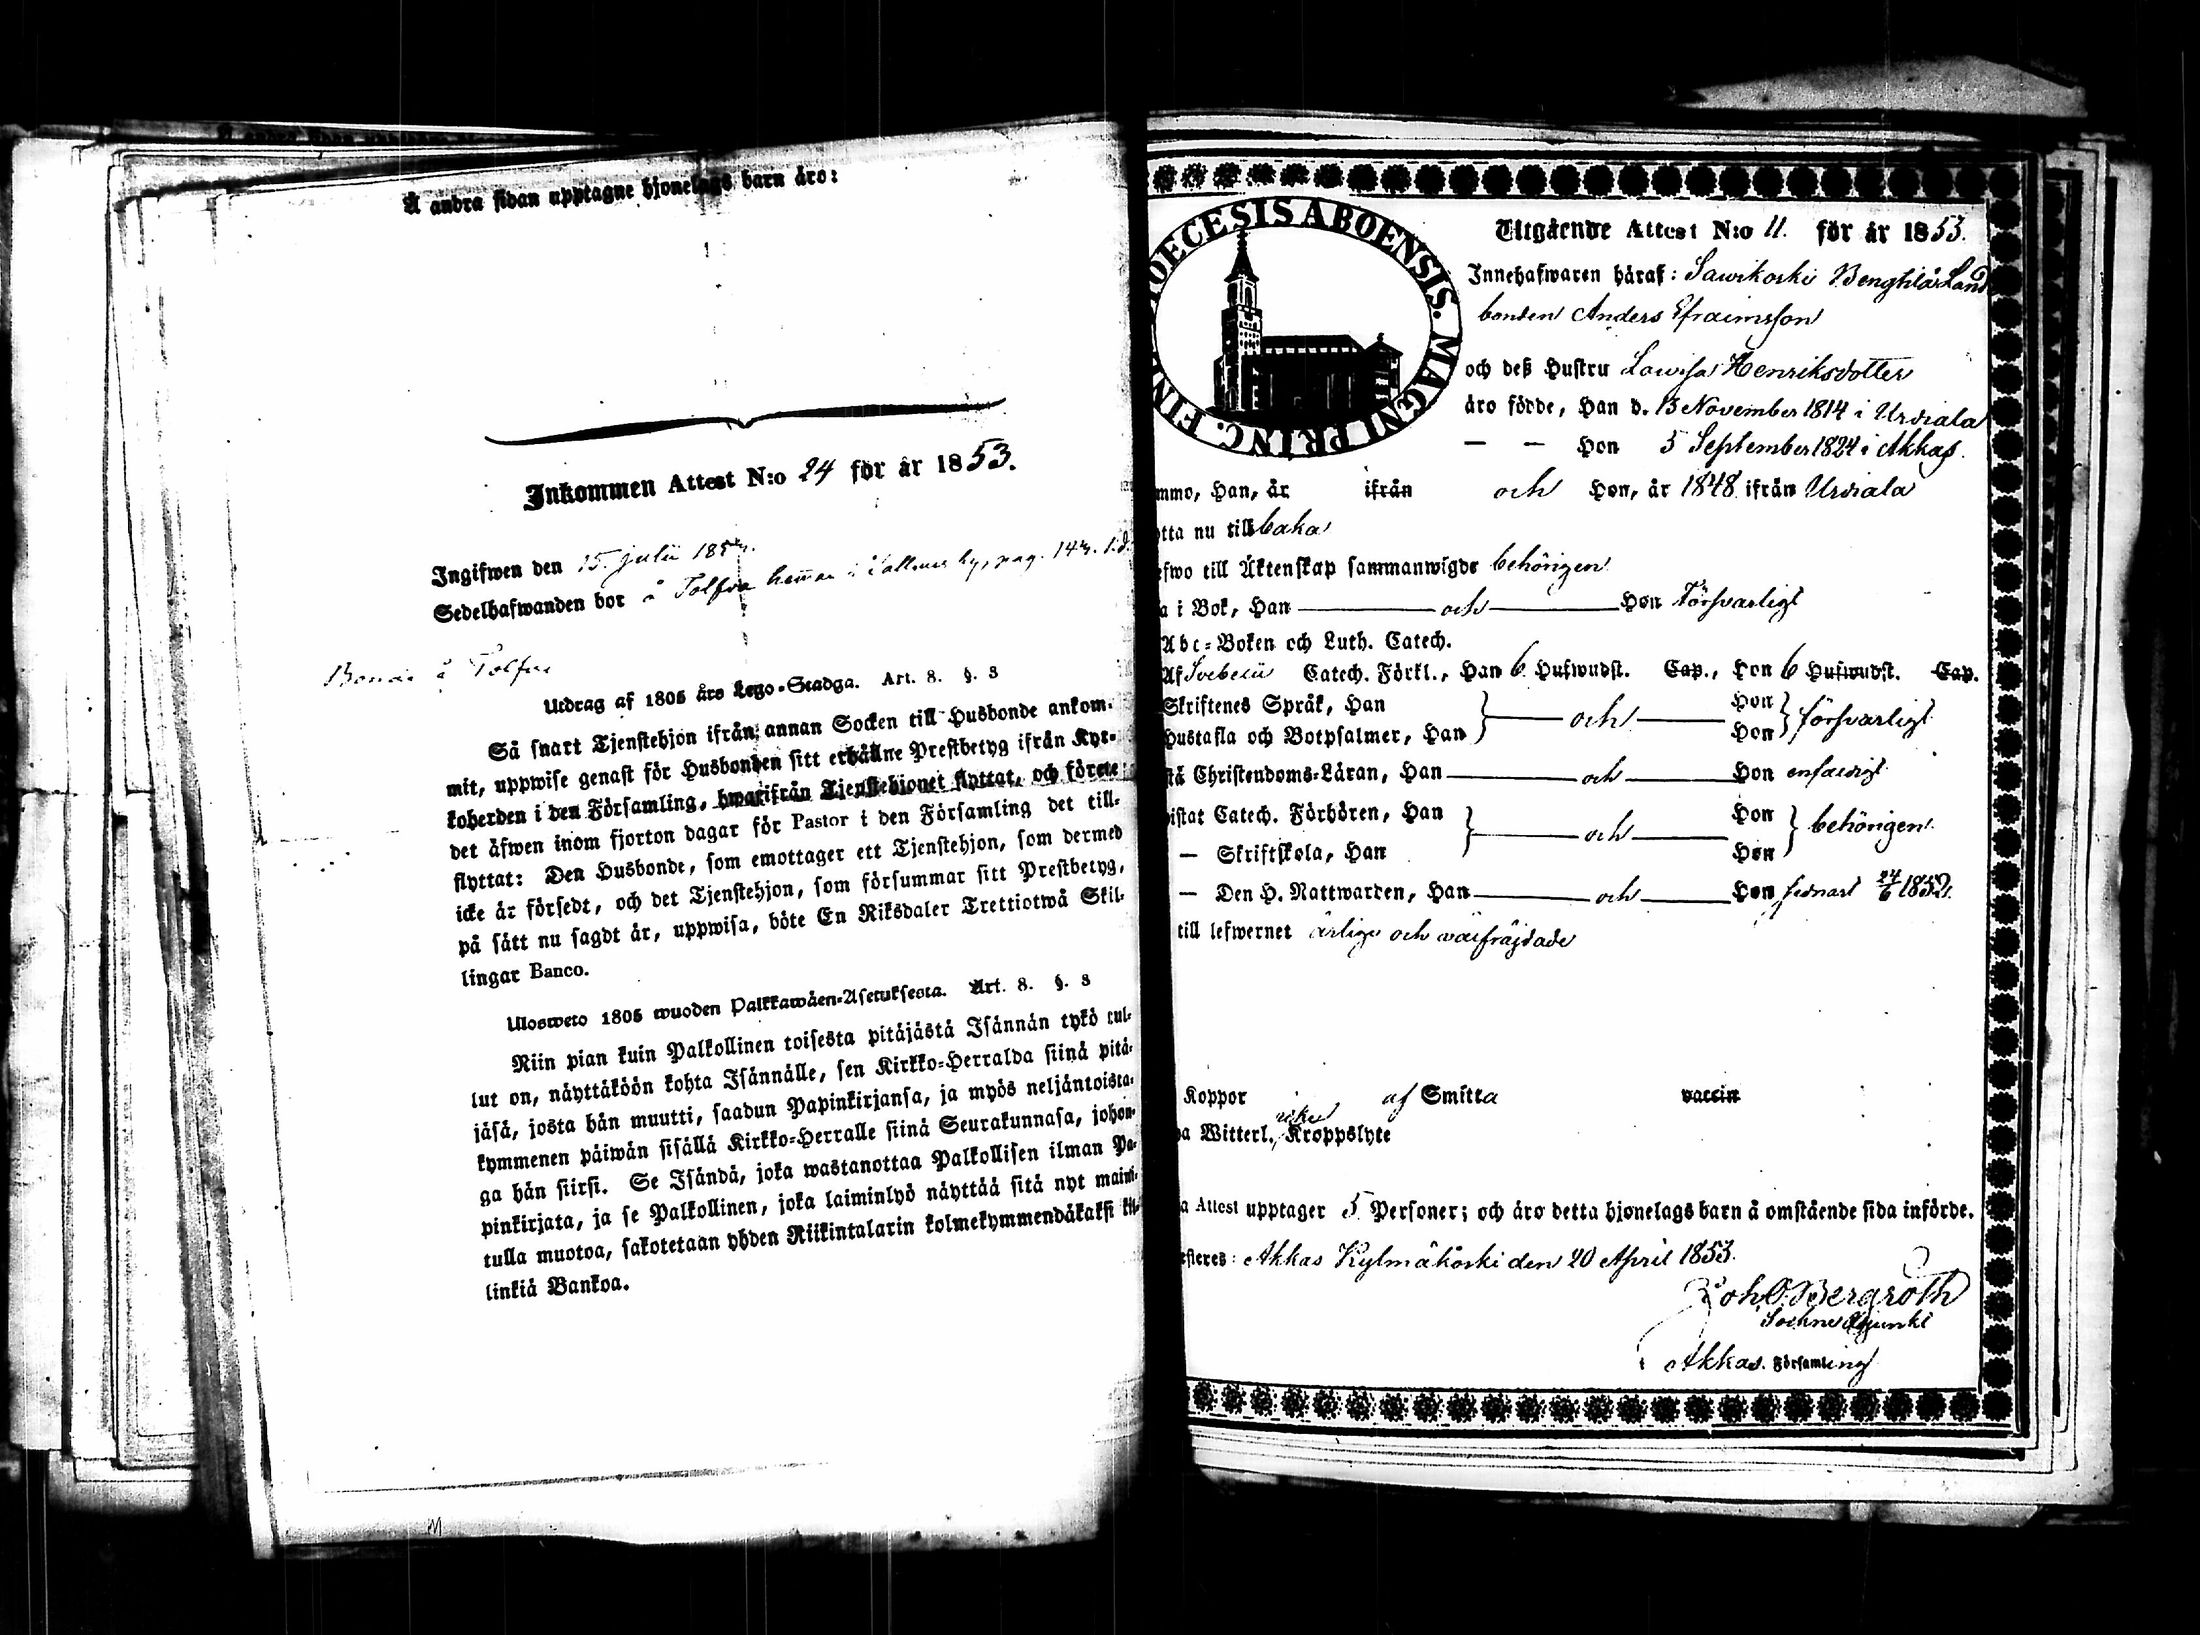 Å andra sidan upptagne hjonelags barn äro:
Inkommen Attest N:o 24 för år 1853.
Ingifwen den 15 Julii 185
Sedelhafwanden bor å Tolfva hemman i
å Tolfva
Utdrag af 1805 års Lego-Stadga. Art. 8. §. 3
Så snart Tjenstehjon ifrån annan Socken till Husbonde ankom-
mit, uppwise genast för Husbonden sitt erhållne Prestbetyg ifrån Kyr-
koherden i den Församling, hwarifrån Tjenstehjonet flyttat, och förete
det äfwen inom fjorton dagar för Pastor i den Församling det till-
flyttat: Den Husbonde, som emottager ett Tjenstehjon, som dermed
icke är försedt, och det Tjenstehjon, som försummar sitt Prestbetyg,
på sätt nu sagdt är, uppwisa, böte En Riksdaler Trettiotwå Skil-
lingar Banco.
Ulosweto 1805 wuoden Palkkawäen-Asetuksesta. Art. 8. §. 3
Niin pian kuin Palkollinen toisesta pitäjästä Isännän tykö tul-
lut on, näyttäköön kohta Isännälle, sen Kirkko-Herralda siinä pitä-
jäsä, josta hän muutti, saadun Papinkirjansa, ja myös neljäntoista-
kymmenen päiwän sisällä Kirkko-Herralle siinä Seurakunnasa, johon-
ga hän siirsi. Se Isändä, joka wastanottaa Palkollisen ilman Pa-
pinkirjata, ja se Palkollinen, joka laiminlyö näyttää sitä nyt maini-
tulla muotoa, sakotetaan yhden Riikintalarin kolmekymmendäkaksi kil-
linkiä Bankoa.
DIOECESIS ABOENSIS. MAGNI PRINC. FIN
Utgående Attest N:o 11. för år 1853.
Innehafwaren häraf: Sawikoski Bengtilä Land
bonden Anders Efraimsson
och deß Hustru Lowisa Henriksdotter
äro födde, Han d. 13 November 1814 i Urdiala
— — Hon 5 September 1824 i Akkas.
mmo, Han, år ifrån och Hon, år 1848 ifrån Urdiala
otta nu till baka
efwo till Äktenskap sammanwigde behörigen
a i Bok, Han och Hon Försvarligt
Abc-Boken och Luth. Catech.
Af Svebelii Catech. Förkl., Han 6 Hufwudst. Cap., Hon 6 Hufwudst. Cap.
Skriftenes Språk, Han och Hon försvarligt
Hustafla och Botpsalmer, Han Hon
stå Christendoms-Läran, Han och Hon enfaldigt
wistat Catech. Förhören, Han och Hon behörigen
— Skriftskola, Han Hon
— Den H. Nattwarden, Han och Hon sednast 24/6 1852.
till lefwernet ärlige och wälfräjdade
Koppor af Smitta vaccin
a Witterl. Kroppslyte
a Attest upptager 5 Personer; och äro detta hjonelags barn å omstående sida införde.
esteres: Akkas Kylmäkoski den 20 April 1853.
Joh O. Bergroth
Sockne Adjunkt
Akkas. Församling